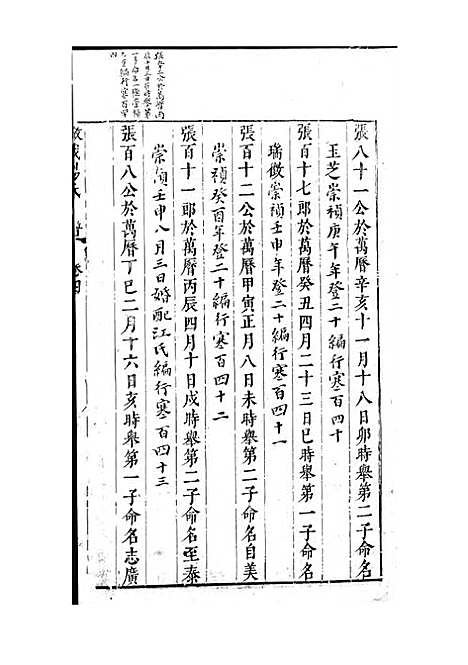 張八十一公於萬曆辛亥十一月十八日卯時舉第二子命名
玉芝崇禎庚午年登二十編行寒百四十
張百十七郎於萬曆癸丑四月二十三日巳時舉第一子命名
瑞徵崇禎壬申年登二十編行寒百四十一
張百十二公於萬曆甲寅正月八日未時舉第二子命名自美
崇禎癸酉年登二十編行寒百四十二
張百十一郎於萬曆丙辰四月十日戌時舉第二子命名至泰
崇禎壬申八月三日婚配江氏編行寒百四十三
張百八公於萬曆丁巳二月十六日亥時舉第一子命名志廣
卷四